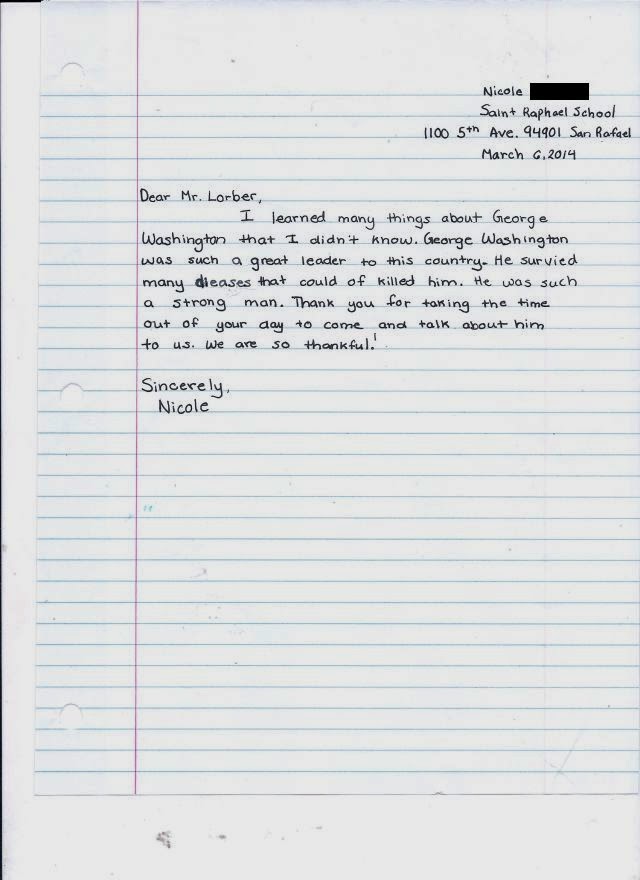 Nicole
Saint Raphael School
1100 5th Ave. 94901 San Rafael
March 6, 2014
Dear Mr. Lorber,
I learned many things about George
Washington that I didn't know. George Washington
was such a great leader to this country. He survied
many dieases that could of killed him. He was such
a strong man. Thank you for taking the time
out of your day to come and talk about him
to us. We are so thankful!
Sincerely,
Nicole